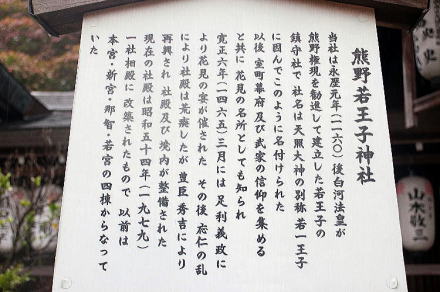 熊野若王子神社
当社は永歴元年(一一六〇)後白河法皇が
熊野権現を勧進して建立した若王子の
鎮守社で 社名は天照大神の別称 若一王子
に因んでこのように名付けられた
以後 室町幕府及び武家の信仰を集める
と共に 花見の名所としても知られ
寛正六年(一四六五)三月には 足利義政に
より花見の宴が催された その後 応仁の乱
により社殿は荒廃したが 豊臣秀吉により
再興され 社殿及び境内が整備された
現在の社殿は昭和五十四年(一九七九)
一社相殿に 改築されたもので 以前は
本宮・新宮・那智・若宮の四棟からなって
いた
山本敬三